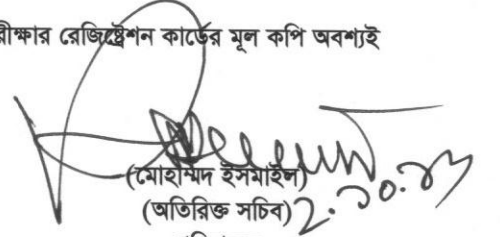 রীক্ষার রেজিষ্ট্রেশন কার্ডের মূল কপি অবশ্যই
(মোহাম্মদ ইসমাইল)
(অতিরিক্ত সচিব)
২.১০.২৩